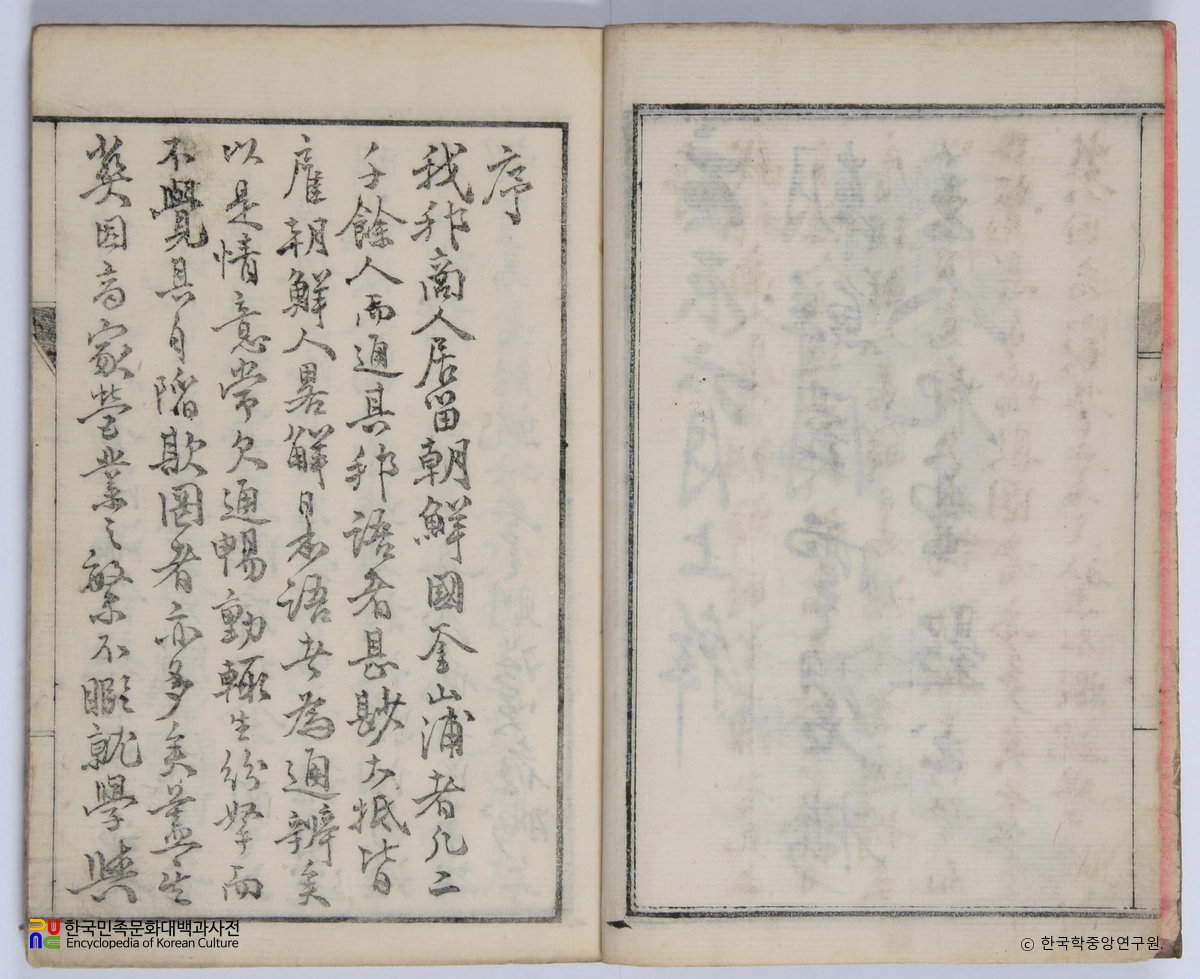 序
我邦商人居留朝鮮國釜山浦者凡二
千餘人而通其邦語者甚尠大抵皆
雇朝鮮人畧解日本語者為通辨矣
以是情意常欠通暢動輙生紛拏而
不覺其自陷欺罔者亦多矣蓋生
等因商家營業之繁不暇就學與
한국민족문화대백과사전
Encyclopedia of Korean Culture
© 한국학중앙연구원